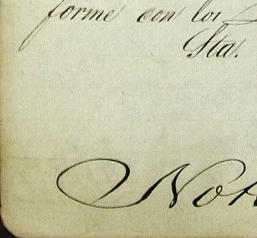 forme con los
Sta.
Not